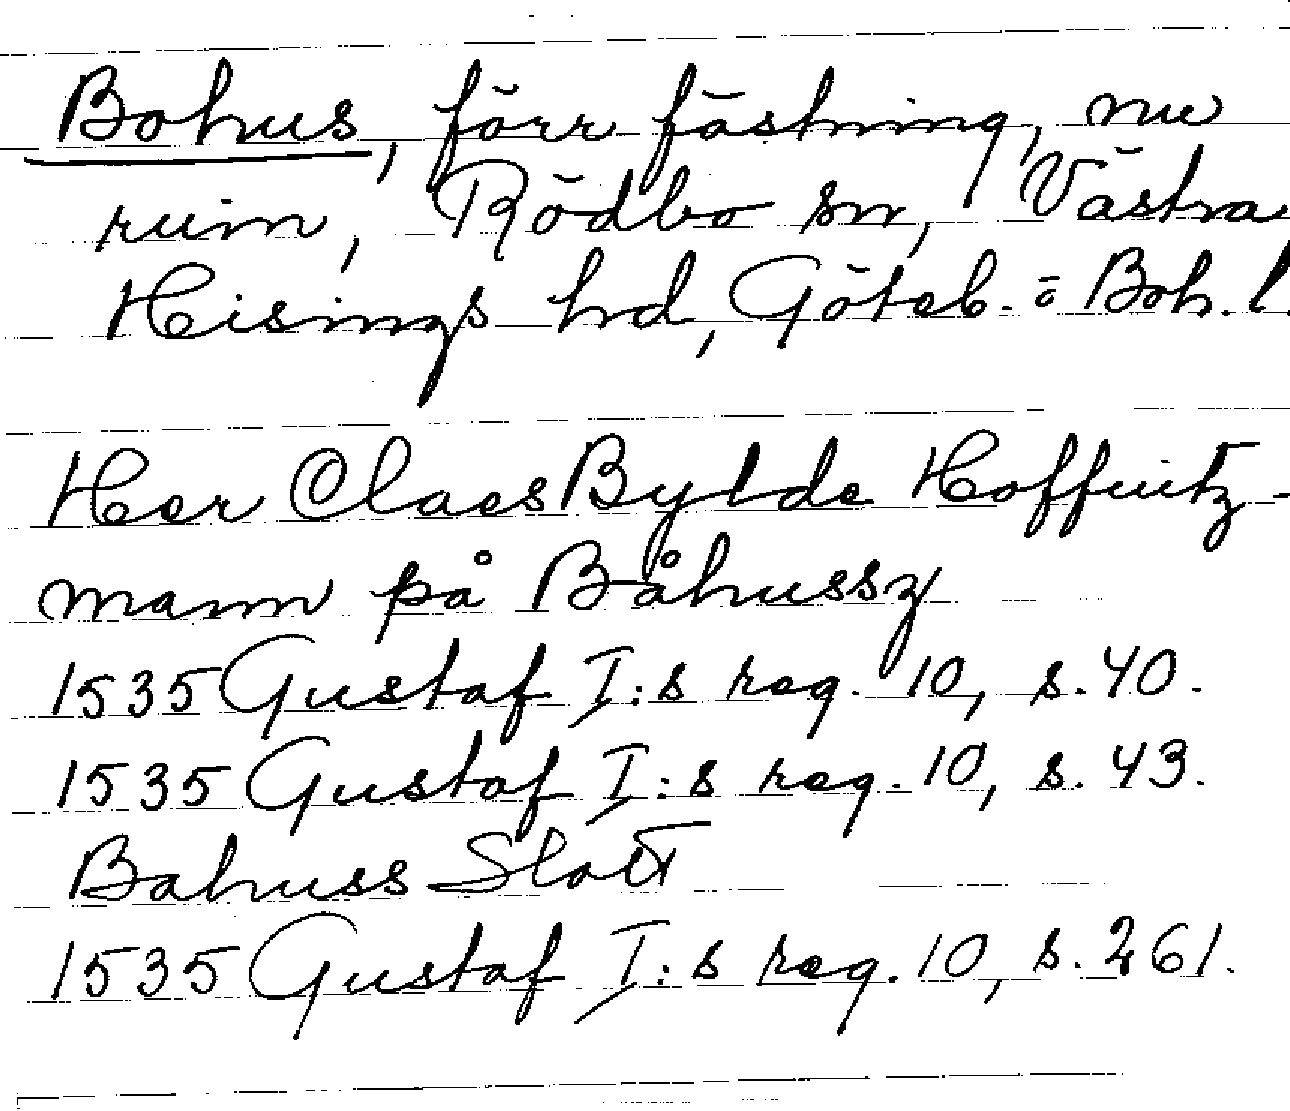 Bohus, förr fästning, nu
ruin, Rödbo sn, Västra
Hisings hd, Göteb. o Boh. l.
Her Claes Bylde Hoffuitz-
mann på Båhussz
1535 Gustaf I:s reg. 10, s. 40.
1535 Gustaf I:s reg. 10, s. 43.
Bahuss Slott
1535 Gustaf I:s reg. 10, s. 261.